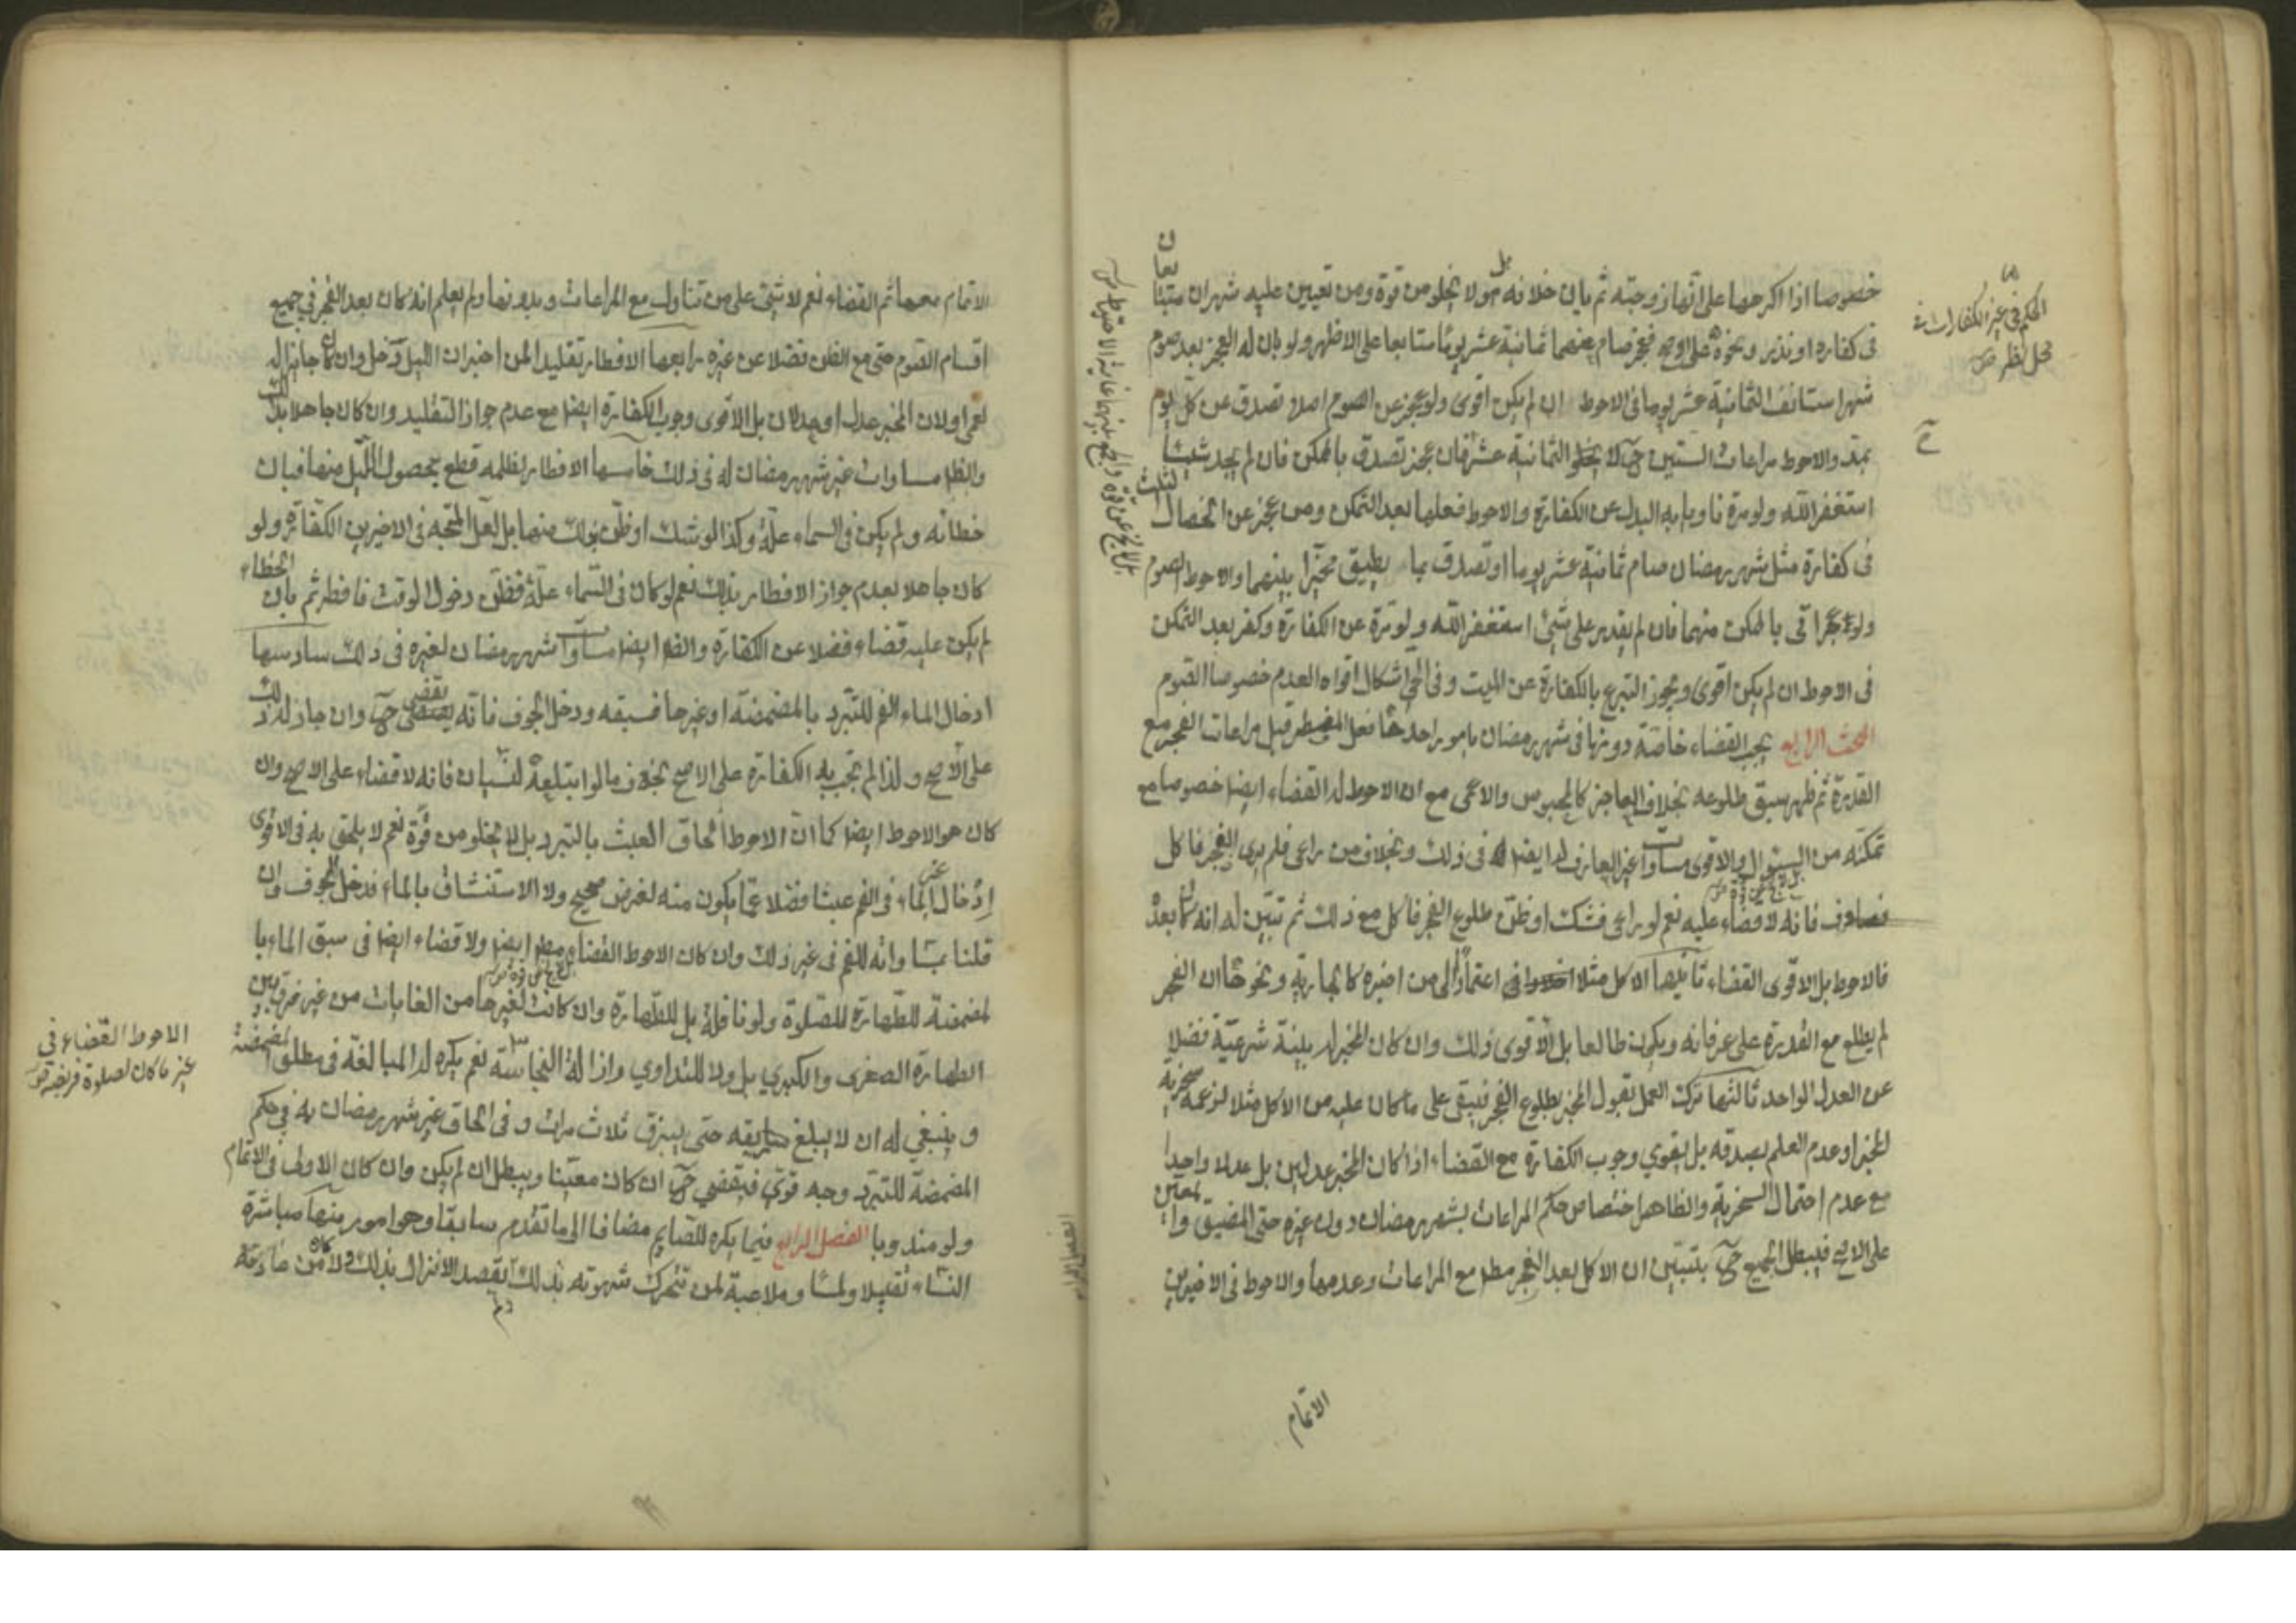 خصوصا اذا اكرهها على انها زوجته ثم بان خلافه بل هو لا يخلو من قوة ومن تعيين عليه شهران متتابعان
فى كفارة او نذر ونحوه على الاوجه فعجز صام عنهما ثمانية عشر يوما متتابعا على الاظهر ولو بان له العجز بعد صوم
شهر استانف الثمانية عشر يوما فى الاحوط ان لم يكن اقوى ولو عجز عن الصوم اصلا تصدق عن كل يوم
بمد والاحوط مراعات الستين ح لا الثمانية عشر فان عجز تصدق بالممكن فان لم يجد شيئا
استغفر الله ولو مرة ناويا به البدل عن الكفارة والاحوط فعلها بعد التمكن ومن عجز عن الخصال الثلث
فى كفارة مثل شهر رمضان صام ثمانية عشر يوما او تصدق بما يطيق مخيرا بينهما والاحوط الصوم
ولو عجز اتى بالممكن منهما فان لم يقدر على شئ استغفر الله ولو مرة عن الكفارة وكفر بعد التمكن
فى الاحوط ان لم يكن اقوى ويجوز التبرع بالكفارة عن الميت وفى الحى اشكال اقواه العدم خصوصا الصوم
المبحث الرابع يجب القضاء خاصة دونها فى شهر رمضان بامور احدها فعل المفطر قبل مراعات الفجر مع
القدرة ثم ظهر سبق طلوعه بخلاف العاجز كالمحبوس والاعمى مع ان الاحوط له القضاء ايضا خصوصا مع
تمكنه من السؤال والاقوى مساوات غير العارف له ايضا فى ذلك وبخلاف من راعى فلم يرى الفجر فاكل
فصادف فانه لا قضاء عليه نعم لو راعى فشك او ظن طلوع الفجر فاكل مع ذلك ثم تبين له انه كان بعده
فالاحوط بل الاقوى القضاء ثانيها الاكل مثلا اعتمادا الى من اخبره كالجارية ونحوها ان الفجر
لم يطلع مع القدرة على عرفانه ويكون طالعا بل الاقوى ذلك وان كان المخبر له بينة شرعية فضلا
عن العدل الواحد ثالثها ترك العمل بقول المخبر بطلوع الفجر فيبقى على ما كان عليه من الاكل مثلا لزعمه سخرية
المخبر او عدم العلم بصدقه بل يقوي وجوب الكفارة مع القضاء اذا كان المخبر عدلين بل عدلا واحدا
مع عدم احتمال السخرية والظاهر اختصاص حكم المراعات بشهر رمضان دون غيره حتى المضيق والمعين
على الاصح فيبطل الجميع ح بتبين ان الاكل بعد الفجر مطلقا مع المراعات وعدمها والاحوط فى الاخيرين
الاتمام
الحكم فى غير الكفارات
محل نظر
الاتمام معها ثم القضاء نعم لا شئ على من تناول مع المراعات وبدونها ولم يعلم انه كان بعد الفجر فى جميع
اقسام الصوم حتى مع الظن فضلا عن غيره رابعها الافطار تقليدا لمن اخبر ان الليل دخل وان كان جايزا له
لعمى او لان المخبر عدل او عدلان بل الاقوى وجوب الكفارة ايضا مع عدم جواز التقليد وان كان جاهلا بذلك
والظ مساوات غير شهر رمضان له فى ذلك خامسها الافطار لظلمة قطع بحصول الليل منها فبان
خطائه ولم يكن فى السماء علة وكذا لو شك او ظن بذلك منها بل لعل المتجه فى الاخيرين الكفارة ولو
كان جاهلا بعدم جواز الافطار بذلك نعم لو كان فى السماء علة فظن دخول الوقت فافطر ثم بان الخطاء
لم يكن عليه قضاء فضلا عن الكفارة والظ ايضا مساوات شهر رمضان لغيره فى ذلك سادسها
ادخال الماء الفم للتبرد بالمضمضة او غيرها فسبقه ودخل الجوف فانه يقضى ح وان جاز له ذلك
على الاصح ولذا لم تجب به الكفارة على الاصح بخلاف ما لو ابتلعه لنسيان فانه لا قضاء على الاصح وان
كان هو الاحوط ايضا كما ان الاحوط الحاق العبث بالتبرد بل لا يخلو من قوة نعم لا يلحق به فى الاقوى
ادخال غير الماء فى الفم عبثا فضلا عما يكون منه لغرض صحيح ولا الاستنشاق بالماء فدخل الجوف وان
قلنا بمساواته للفم فى غير ذلك وان كان الاحوط القضاء مطلقا ايضا ولا قضاء ايضا فى سبق الماء با
لمضمضة للطهارة للصلوة ولو نافلة بل للطهارة وان كانت لغيرها من الغايات من غير فرق بين
الطهارة الصغرى والكبرى بل ولا للتداوي وازالة النجاسة نعم يكره له المبالغة فى مطلق المضمضة
و ينبغي له ان لا يبلع ريقه حتى يبزق ثلاث مرات و فى الحاق غير شهر رمضان به فى حكم
المضمضة للتبرد وجه قوى فيقضي ح ان كان معينا ويبطل ان لم يكن وان كان الاولى فى الاتمام
ولو مندوبا الفصل الرابع فيما يكره للصايم مضافا الى ما تقدم سابقا وهو امور منها مباشرة
النساء تقبيلا ولمسا وملاعبة لمن تتحرك شهوته بذلك لم يقصد الانزال بذلك ولا كان من عادته
الاحوط القضاء فى
غير ما كان لصلوة فريضة